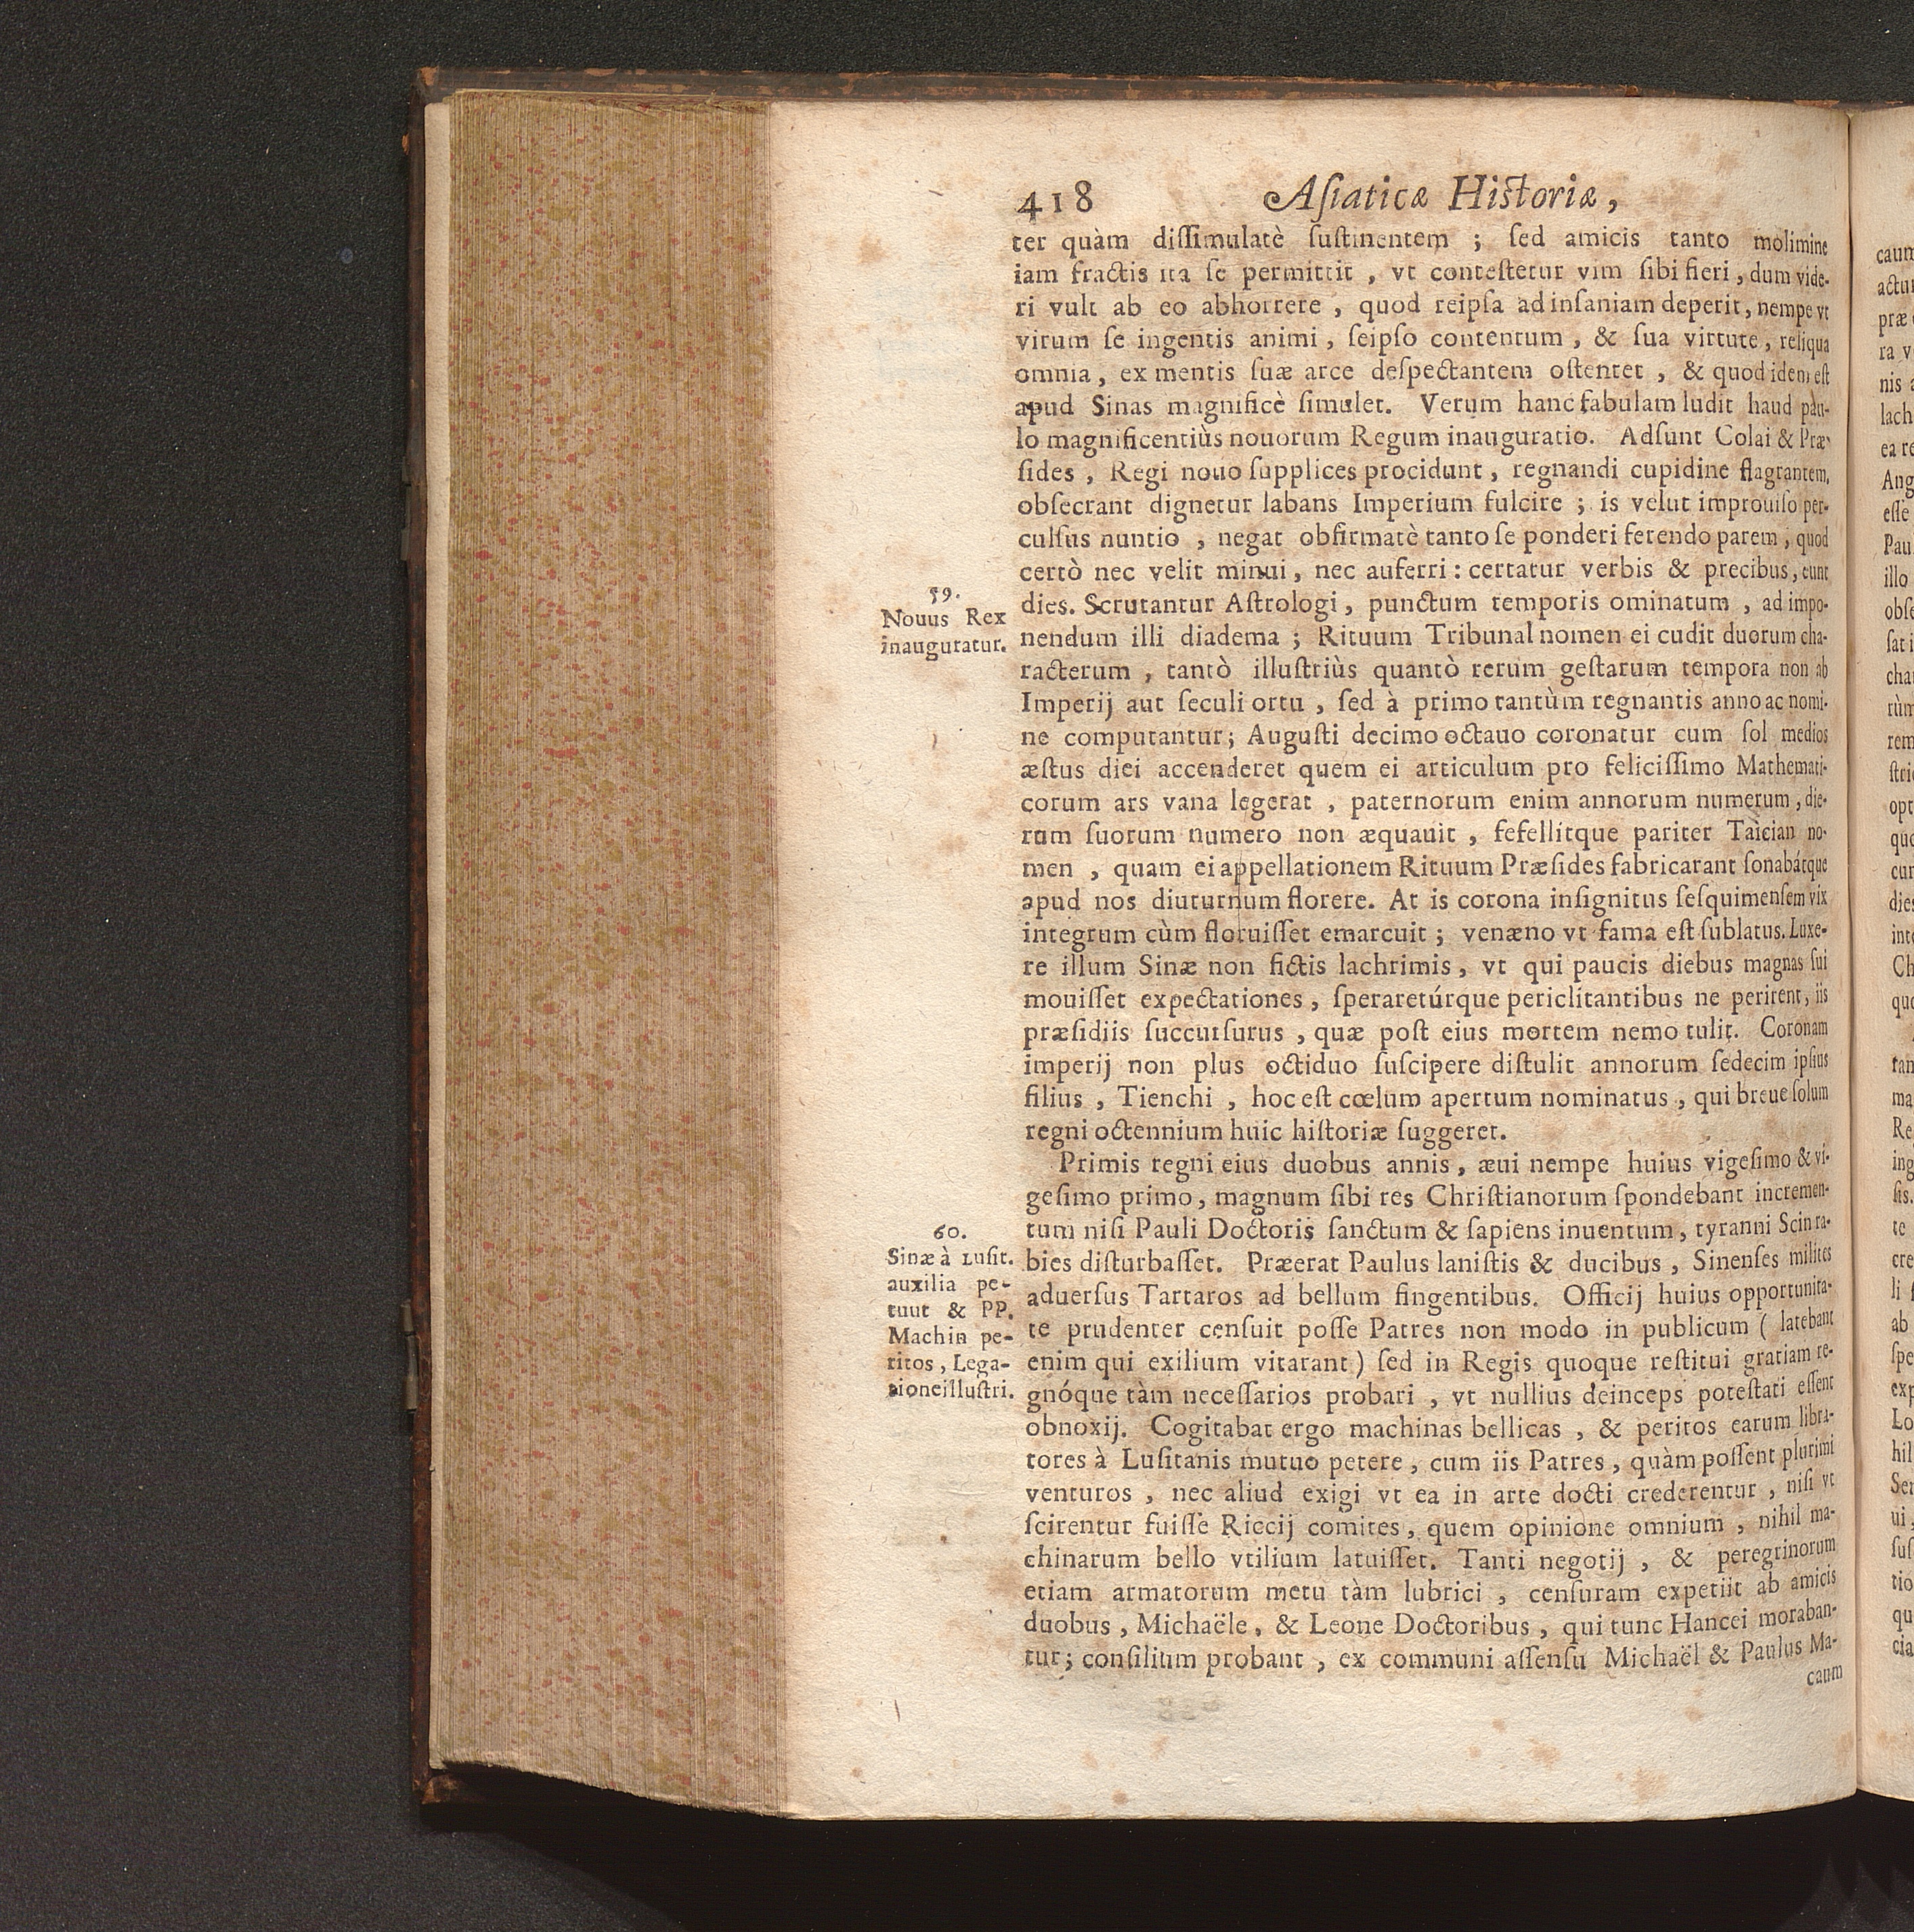 418 Asiaticæ Historiæ,
ter quàm dissimulatè sustinentem ; sed amicis tanto molimine
iam fractis ita se permittit , vt contestetur vim sibi fieri , dum vide-
ri vult ab eo abhorrere , quod reipsa ad insaniam deperit, nempe vt
virum se ingentis animi , seipso contentum , & sua virtute , reliqua
omnia, ex mentis suæ arce despectantem ostentet , & quod idem est
apud Sinas magnificè simulet. Verum hanc fabulam ludit haud pau-
lo magnificentiùs nouorum Regum inauguratio. Adsunt Colai & Præ-
sides , Regi nouo supplices procidunt, regnandi cupidine flagrantem,
obsecrant dignetur labans Imperium fulcire ; is velut improuiso per-
culsus nuntio , negat obfirmatè tanto se ponderi ferendo parem , quod
certò nec velit minui, nec auferri : certatur verbis & precibus, eunt
59.
Nouus Rex
inauguratur.
dies. Scrutantur Astrologi, punctum temporis ominatum , ad impo-
nendum illi diadema ; Rituum Tribunal nomen ei cudit duorum cha-
racterum , tantò illustriùs quantò rerum gestarum tempora non ab
Imperij aut seculi ortu , sed à primo tantùm regnantis anno ac nomi-
ne computantur; Augusti decimo octauo coronatur cum sol medios
æstus diei accenderet quem ei articulum pro felicissimo Mathemati-
corum ars vana legerat , paternorum enim annorum numerum , die-
rum suorum numero non æquauit , fefellitque pariter Taician no-
men , quam ei appellationem Rituum Præsides fabricarant sonabátque
apud nos diuturnum florere. At is corona insignitus sesquimensem vix
integrum cùm floruisset emarcuit ; venæno vt fama est sublatus. Luxe-
re illum Sinæ non fictis lachrimis, vt qui paucis diebus magnas sui
mouisset expectationes , speraretúrque periclitantibus ne perirent, iis
præsidiis succursurus , quæ post eius mortem nemo tulit. Coronam
imperij non plus octiduo suscipere distulit annorum sedecim ipsius
filius , Tienchi , hoc est cœlum apertum nominatus , qui breue solum
regni octennium huic historiæ suggeret.
Primis regni eius duobus annis, æui nempe huius vigesimo & vi-
gesimo primo, magnum sibi res Christianorum spondebant incremen-
60.
Sinæ à Lusit.
auxilia pe-
tuut & PP.
Machin pe-
ritos, Lega-
tione illustri.
tum nisi Pauli Doctoris sanctum & sapiens inuentum, tyranni Scin ra-
bies disturbasset. Præerat Paulus lanistis & ducibus , Sinenses milites
aduersus Tartaros ad bellum fingentibus. Officij huius opportunita-
te prudenter censuit posse Patres non modo in publicum ( latebant
enim qui exilium vitarant) sed in Regis quoque restitui gratiam re-
gnóque tàm necessarios probari , vt nullius deinceps potestati essent
obnoxij. Cogitabat ergo machinas bellicas , & peritos earum libra-
tores à Lusitanis mutuo petere , cum iis Patres , quàm possent plurimi
venturos , nec aliud exigi vt ea in arte docti crederentur , nisi vt
scirentur fuisse Riccij comites, quem opinione omnium , nihil ma-
chinarum bello vtilium latuisset. Tanti negotij , & peregrinorum
etiam armatorum metu tàm lubrici , censuram expetiit ab amicis
duobus , Michaële, & Leone Doctoribus , qui tunc Hancei moraban-
tur; consilium probant , ex communi assensu Michaël & Paulus Ma-
caum